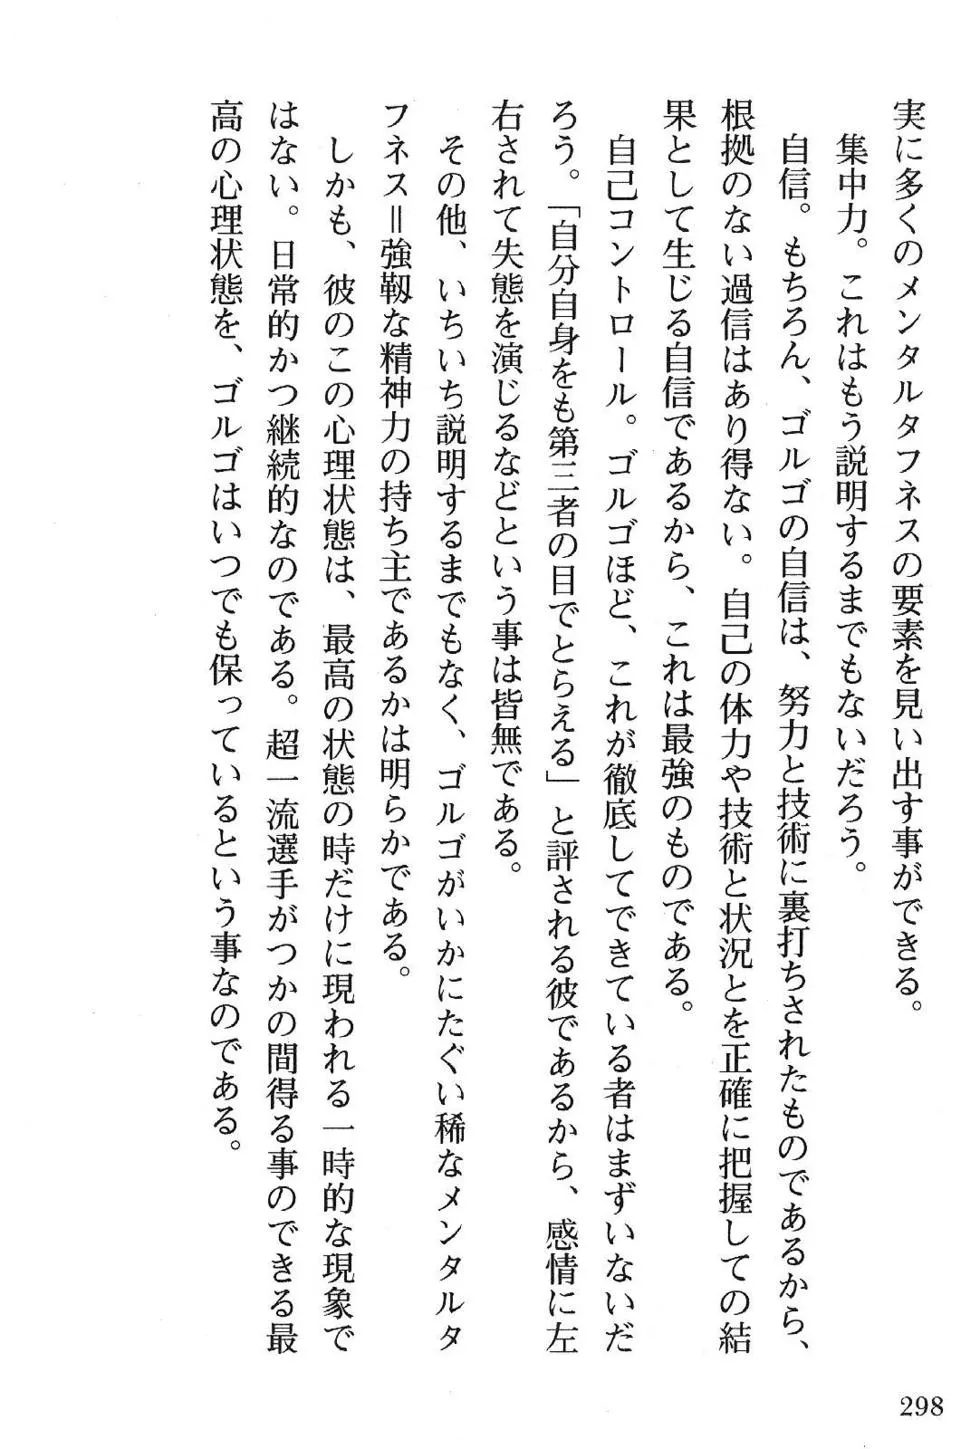 実に多くのメンタルタフネスの要素を見い出す事ができる。
集中力。これはもう説明するまでもないだろう。
自信。もちろん、ゴルゴの自信は、努力と技術に裏打ちされたものであるから、
根拠のない過信はあり得ない。自己の体力や技術と状況とを正確に把握しての結
果として生じる自信であるから、これは最強のものである。
自己コントロール。ゴルゴほど、これが徹底してできている者はまずいないだ
ろう。「自分自身をも第三者の目でとらえる」と評される彼であるから、感情に左
右されて失態を演じるなどという事は皆無である。
その他、いちいち説明するまでもなく、ゴルゴがいかにたぐい稀なメンタルタ
フネス＝強靱な精神力の持ち主であるかは明らかである。
しかも、彼のこの心理状態は、最高の状態の時だけに現われる一時的な現象で
はない。日常的かつ継続的なのである。超一流選手がつかの間得る事のできる最
高の心理状態を、ゴルゴはいつでも保っているという事なのである。
298